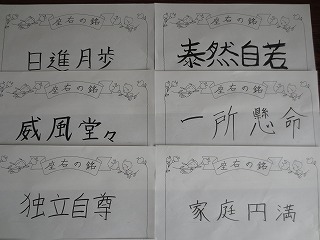 座右の銘
日進月歩
座右の銘
泰然自若
座右の銘
威風堂々
座右の銘
一所懸命
座右の銘
独立自尊
座右の銘
家庭円満